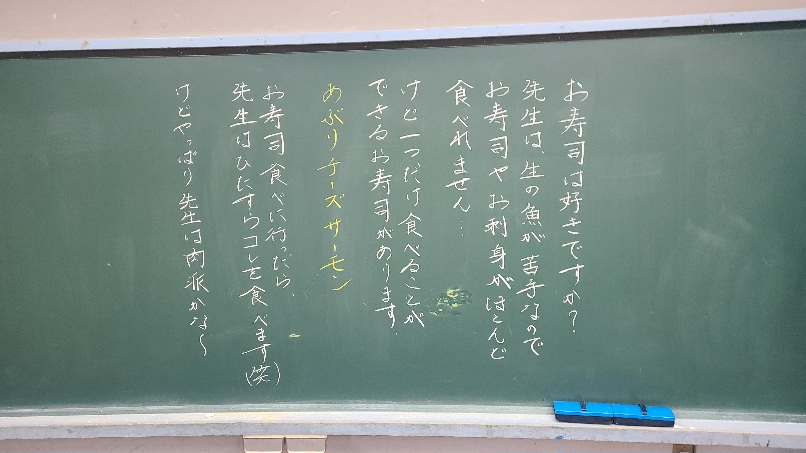 お寿司は好きですか？
先生は、生の魚が苦手なので
お寿司やお刺身がほとんど
食べれません…
けど一つだけ食べることが
できるお寿司があります
あぶりチーズサーモン
お寿司食べに行ったら、
先生はひたすらコレを食べます(笑)
けどやっぱり先生は肉派かな〜